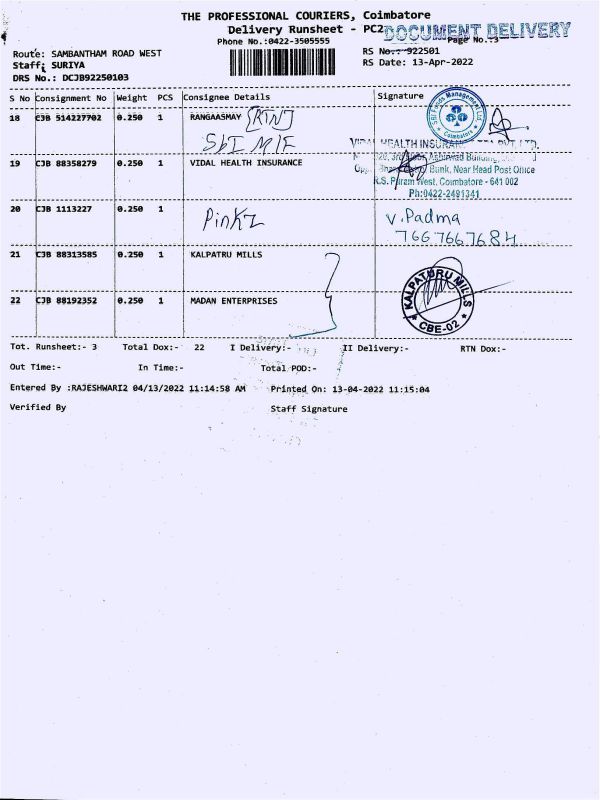 THE PROFESSIONAL COURIERS, Coimbatore
Delivery Runsheet - PC2
DOCUMENT DELIVERY
Phone No.:0422-3505555
Page No.:3
Route: SAMBANTHAM ROAD WEST
RS No.: 922501
Staff: SURIYA
RS Date: 13-Apr-2022
DRS No.: DCJB92250103
S No Consignment No Weight PCS Consignee Details Signature
18 CJB 514227702 0.250 1 RANGAASMAY
SBI MIF
SBI Funds Management Ltd
Coimbatore
19 CJB 88358279 0.250 1 VIDAL HEALTH INSURANCE
VIDAL HEALTH INSURANCE TPA PVT LTD.
Bank, Near Head Post Office
R.S. Puram West, Coimbatore - 641 002
Ph:0422-2491341
20 CJB 1113227 0.250 1
v.Padma
7667667684
21 CJB 88313585 0.250 1 KALPATRU MILLS
KALPATURU MILLS
CBE-02
22 CJB 88192352 0.250 1 MADAN ENTERPRISES
Tot. Runsheet:- 3 Total Dox:- 22 I Delivery:- II Delivery:- RTN Dox:-
Out Time:- In Time:- Total POD:-
Entered By :RAJESHWARI2 04/13/2022 11:14:58 AM Printed On: 13-04-2022 11:15:04
Verified By Staff Signature